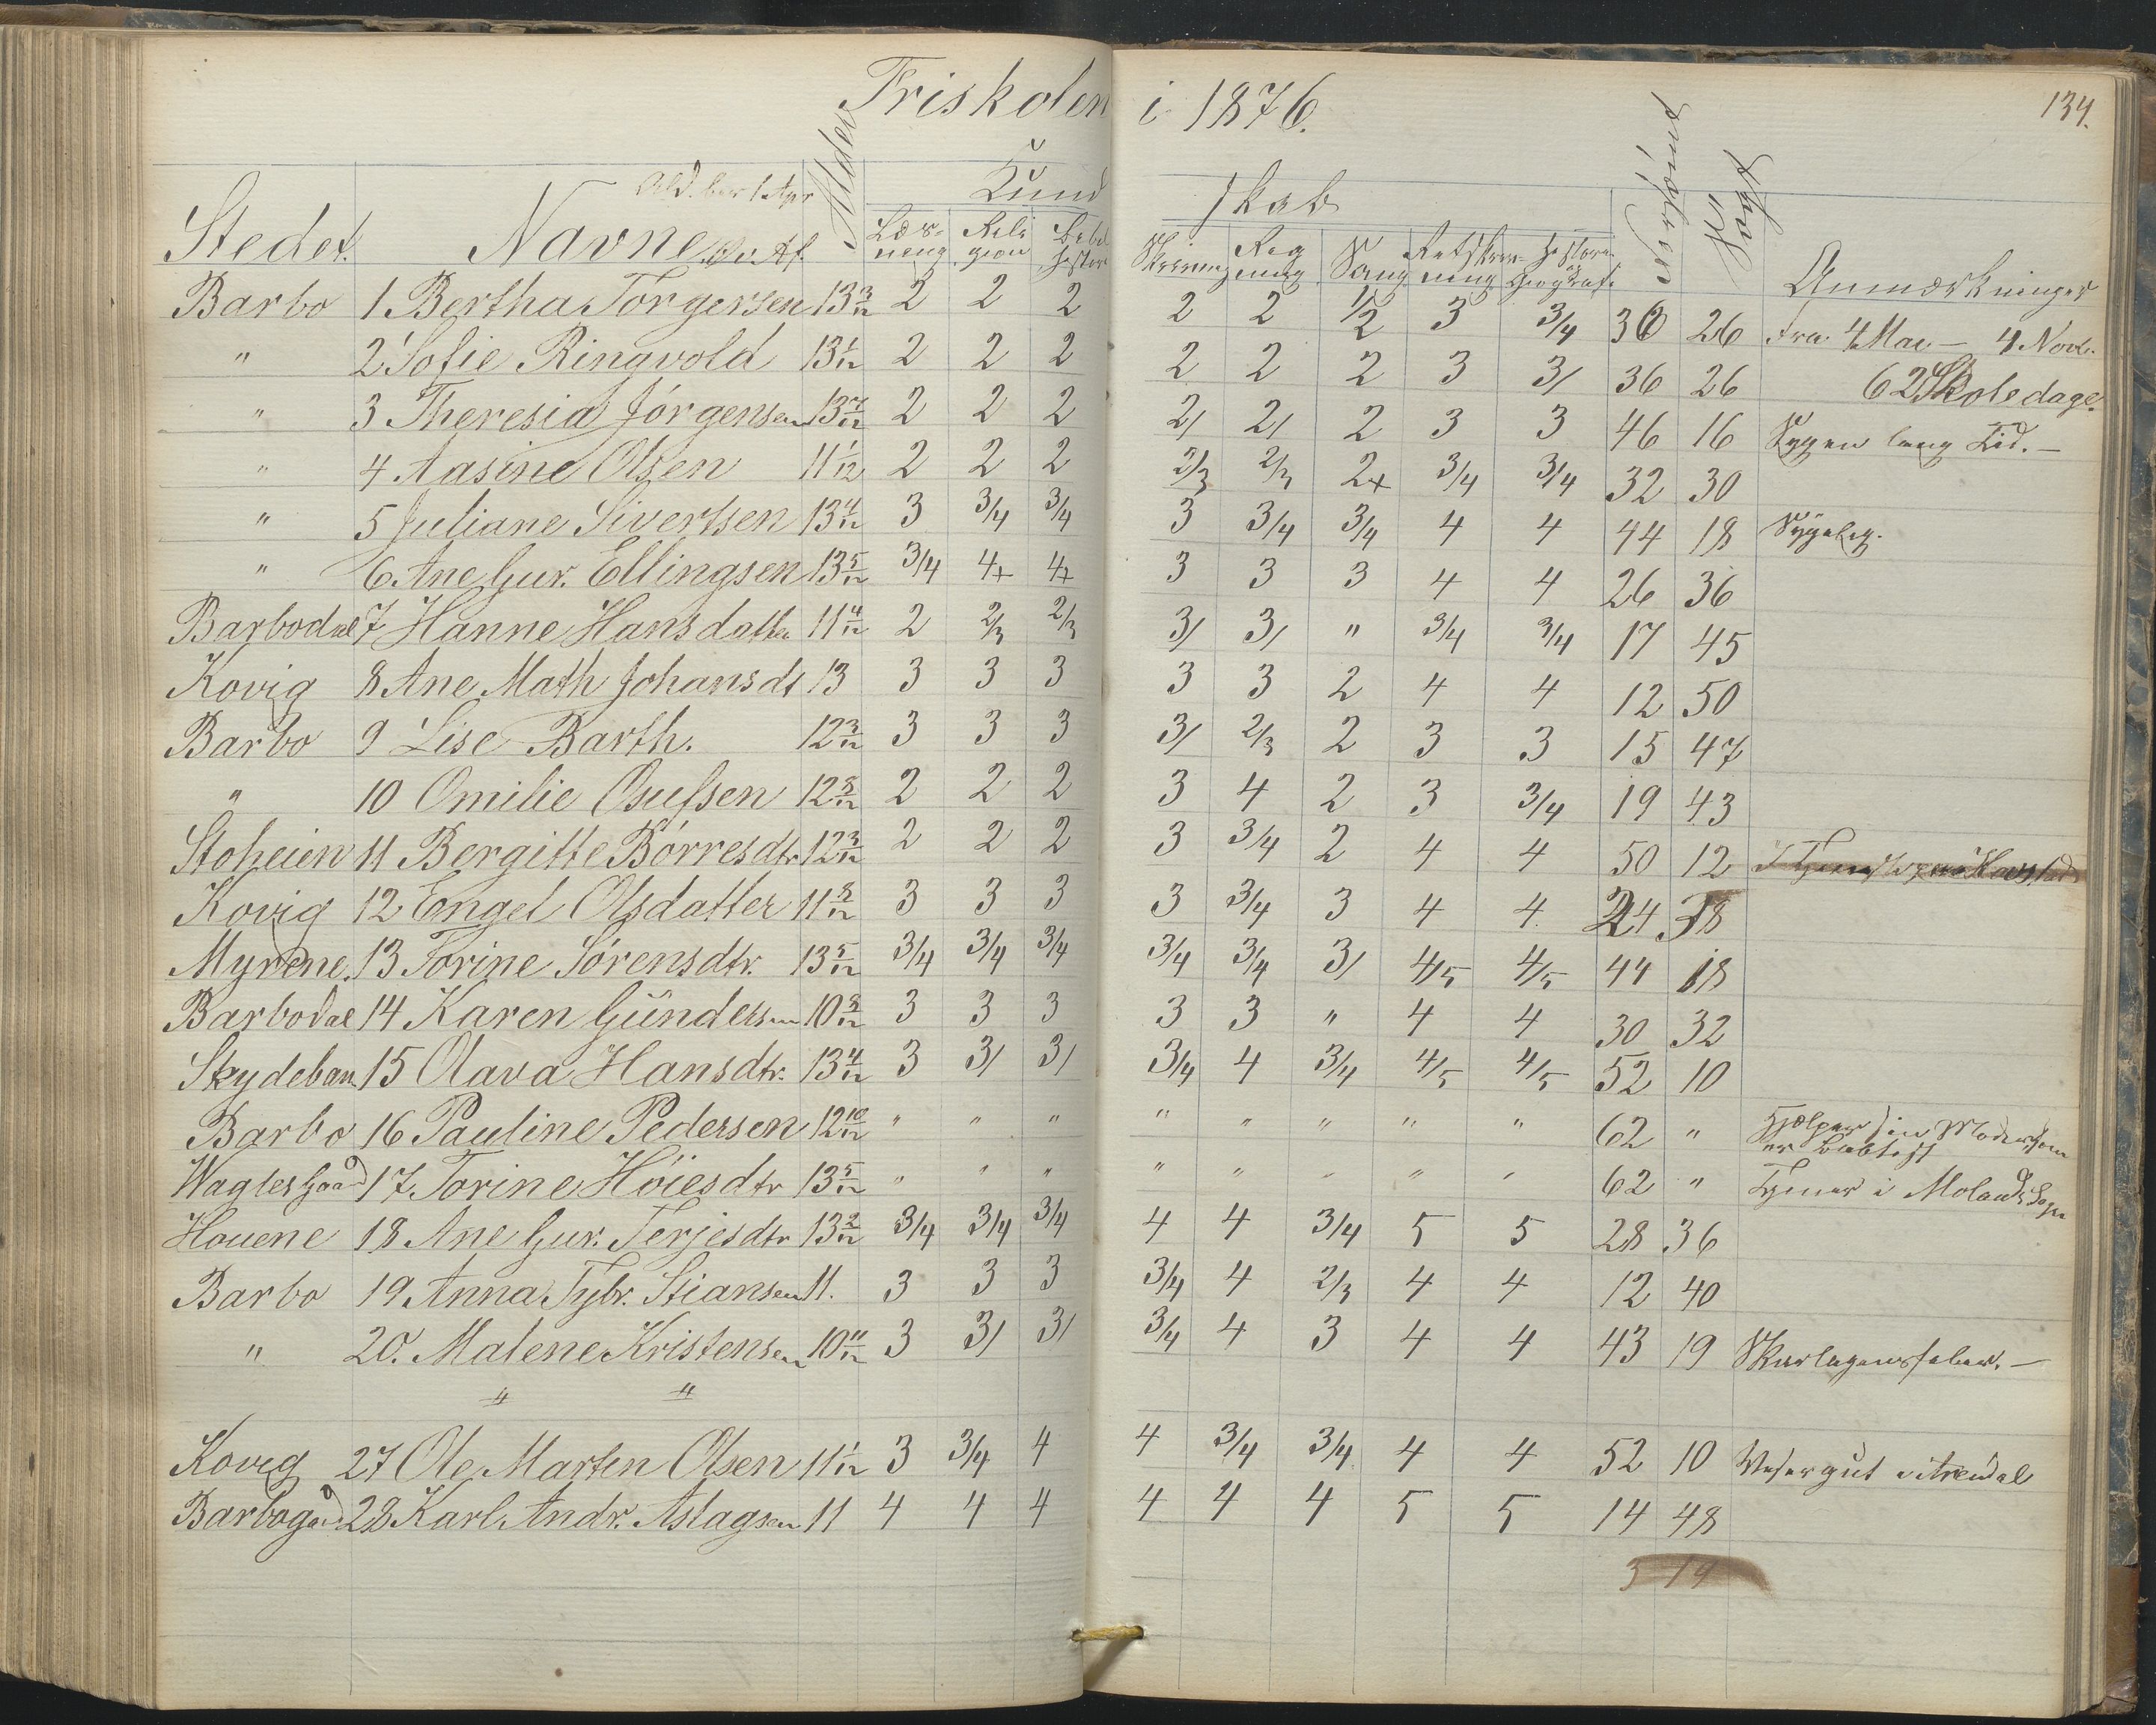 Friskolen i 1876.
134.
Stedet. Navne Alder Kund skab Forsømt Søgt Anmærkninger
Læs-ning Reli gion Bibel histor Skrivning Reg ning Sang Retskriv-ning Historie og Geograf.
Barbo 1 Bertha Torgersen 13 3/12 2 2 2 2 2 1/2 3 3/4 36 26 Fra 4 Mai - 4 Novb.
" 2 Sofie Ringvold 13 1/12 2 2 2 2 2 2 3 3/ 36 26 62 Skoledage.
" 3 Theresia Jørgensen 13 7/12 2 2 2 2/ 2/ 2 3 3 46 16 Sygen lang Tid. -
" 4 Aasine Olsen 11 1/12 2 2 2 2/3 2/3 2+ 3/4 3/4 32 30
" 5 Juliane Sivertsen 13 4/12 3 3/4 3/4 3 3/4 3/4 4 4 44 18 Sygelig.
" 6. Ane Gur. Ellingsen 13 5/12 3/4 4+ 4+ 3 3 3 4 4 26 36
Barbodal 7 Hanne Hansdatter 11 4/12 2 2/3 2/3 3/ 3/ " 3/4 3/4 17 45
Kovig 8 Ane Math Johansdt 13 3 3 3 3 3 2 4 4 12 50
Barbo 9 Lise Barth. 12 3/12 3 3 3 3/ 2/3 2 3 3 15 47
" 10 Omilie Osufsen 12 8/12 2 2 2 3 4 2 3 3/4 19 43
Stoheien 11 Bergitte Børresdtr 12 3/12 2 2 2 3 3/4 2 4 4 50 12
Kovig 12 Engel Olsdatter 11 8/12 3 3 3 3 3/4 3 4 4 24 38
Myrene 13 Torine Sørensdtr. 13 5/12 3/4 3/4 3/4 3/4 3/4 3/ 4/5 4/5 44 18
Barbodal 14 Karen Gundersen 10 8/12 3 3 3 3 3 " 4 4 30 32
Skydeban 15 Olava Hansdtr. 13 4/12 3 3/ 3/ 3/4 4 3/4 4/5 4/5 52 10
Barbo 16 Pauline Pedersen 12 10/12 " " " " " " " " 62 " Hjælper sin Moder som er
Wagtersgaard 17 Torine Høiesdtr 13 5/12 " " " " " " " " 62 " Tjener i Molands Sogn
Houene 18 Ane Gur. Terjesdtr 13 2/12 3/4 3/4 3/4 4 4 3/4 5 5 28 36
Barbo 19 Anna Tybr. Stiansen 11. 3 3 3 3/4 4 2/3 4 4 12 40
" 20. Malene Kristensen 10 11/12 3 3/ 3/ 3/4 4 3 4 4 43 19 Skarlagensfeber. -
" "
Kovig 27 Ole Marten Olsen 11 1/12 3 3/4 4 4 3/4 3/4 4 4 52 10 Visergut i Arendal
Barbogaard 28 Karl Andr. Aslagsen 11 4 4 4 4 4 4 5 5 14 48
3 19